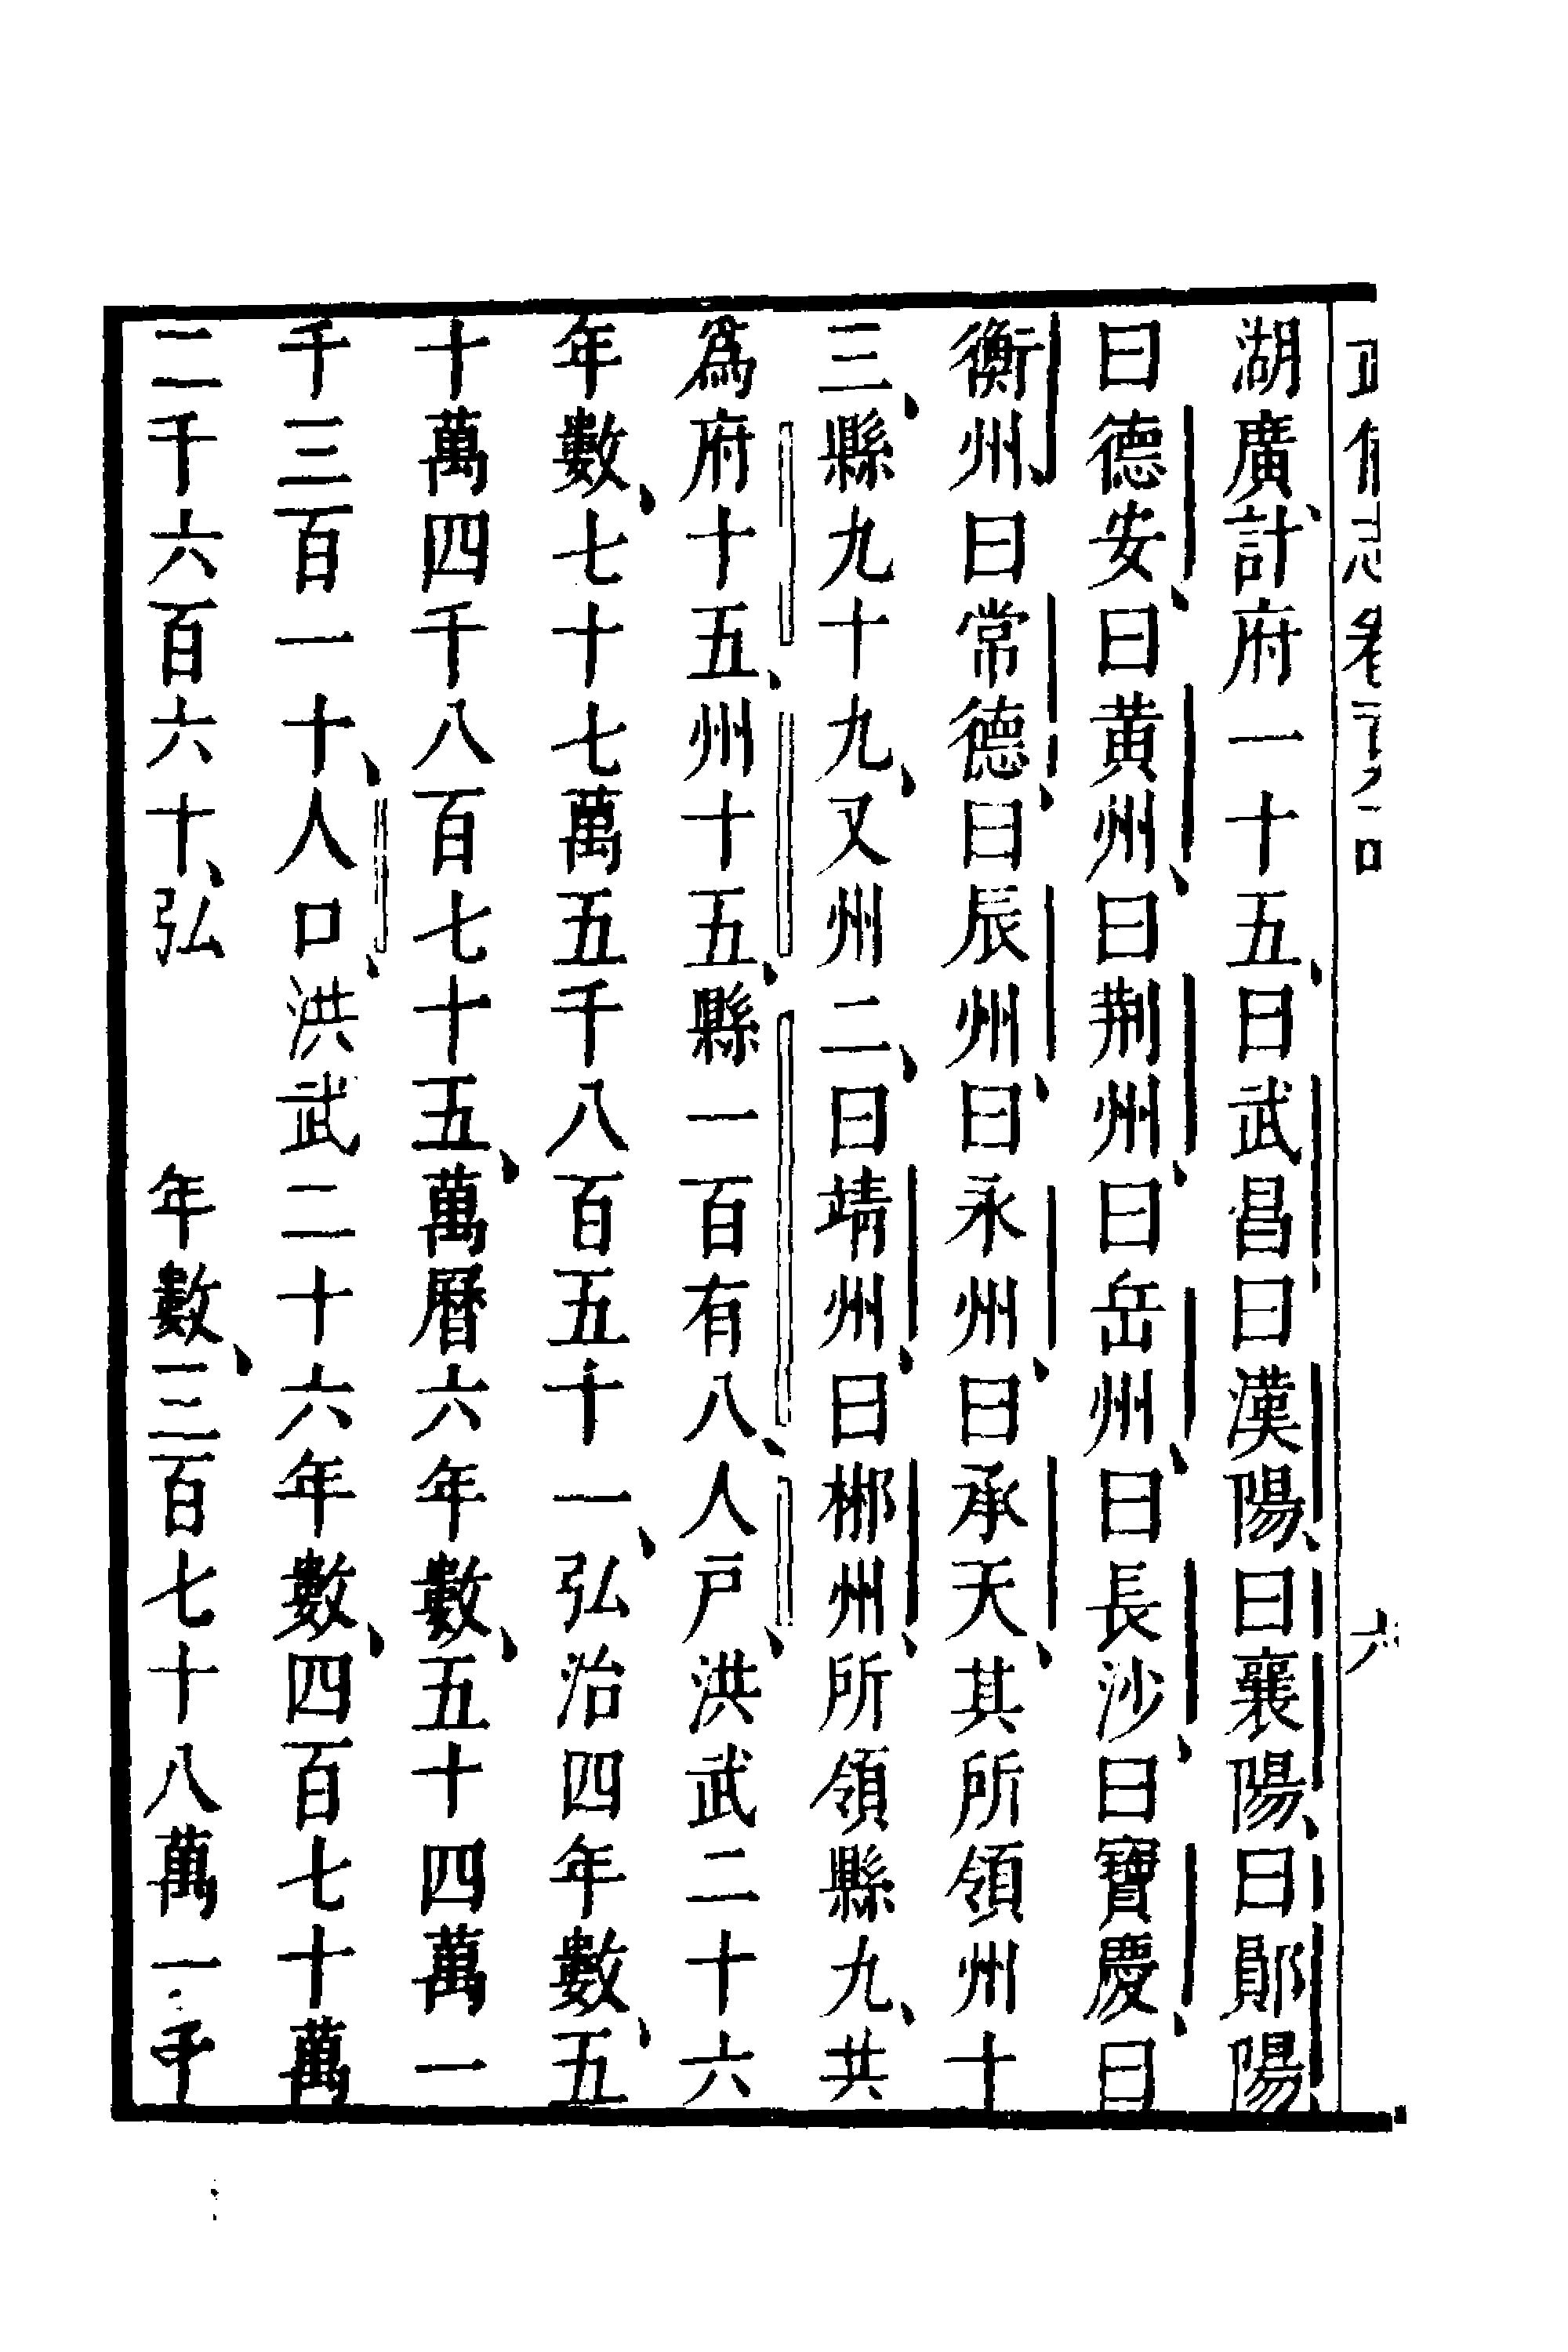 湖廣計府一十五曰武昌曰漢陽曰襄陽曰鄖陽
曰德安曰黄州曰荆州曰岳州曰長沙曰寶慶曰
衡州曰常德曰辰州曰永州曰承天其所領州十
三縣九十九又州二曰靖州曰郴州所領縣九共
爲府十五州十五縣一百有八人戸洪武二十六
年數七十七萬五千八百五十一弘治四年數五
十萬四千八百七十五萬曆六年數五十四萬一
千三百一十人口洪武二十六年數四百七十萬
二千六百六十弘　　年數三百七十八萬一千